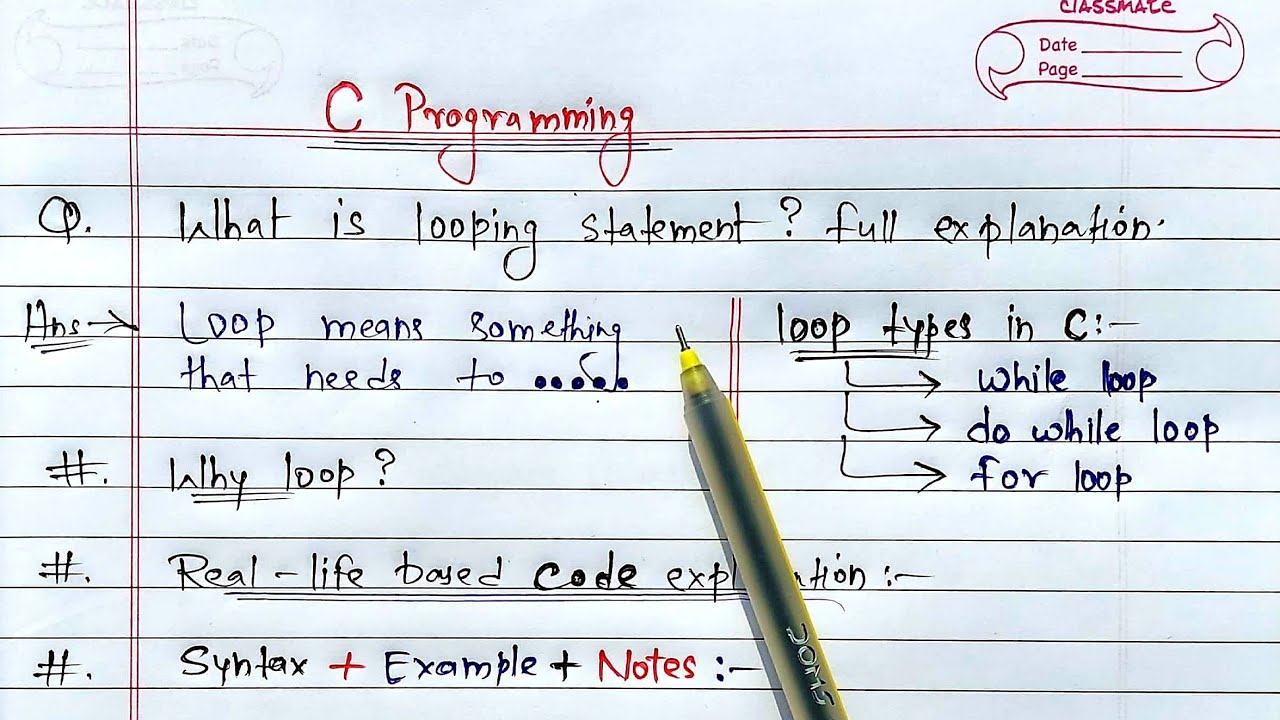 classmate
Date
Page
C Programming
Q. What is looping statement? full explanation.
Ans→ Loop means something
that needs to .....
loop types in C:-
→ while loop
→ do while loop
→ for loop
#. Why loop?
#. Real-life based code expl tion:-
#. Syntax + Example + Notes:-
DOMS